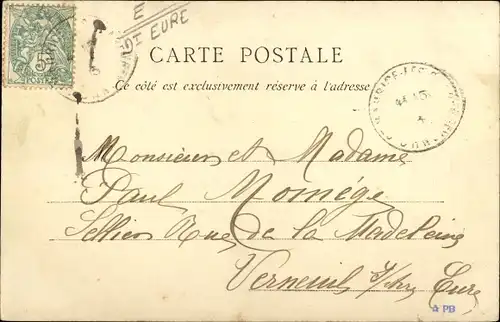 E
ST EURE
CARTE POSTALE
Ce côté est exclusivement réservé à l'adresse
Monsieur et Madame
Paul Momége
Sellier Rue de la Madeleine
Verneuil s/Avre Eure
A PB